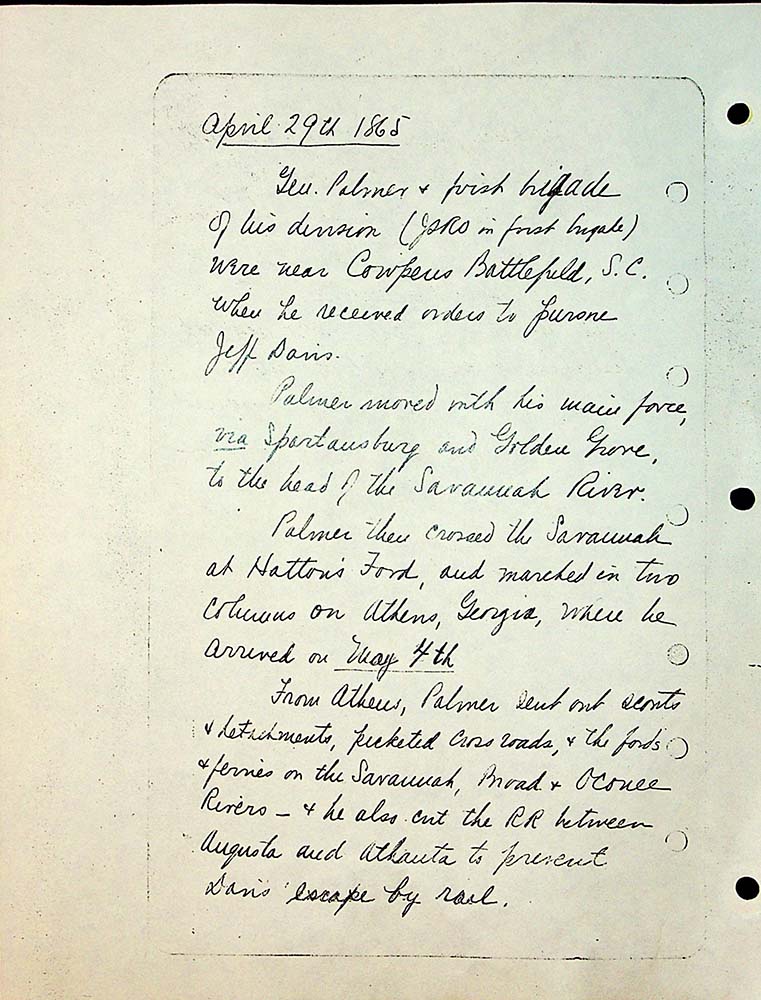 April 29th 1865
Gen. Palmer & first brigade
of his division (JSRO in first brigade)
were near Cowpens Battlefield, S.C.
when he received orders to pursue
Jeff Davis.
Palmer moved with his main force,
via Spartansburg and Golden Grove,
to the head of the Savannah River.
Palmer then crossed the Savannah
at Hatton's Ford, and marched in two
columns on Athens, Georgia, where he
arrived on May 4th
From Athens, Palmer sent out scouts
& detachments, picketed cross roads, & the fords
& ferries on the Savannah, Broad & Oconee
Rivers – & he also cut the RR between
Augusta and Atlanta to prevent
Davis' escape by rail.